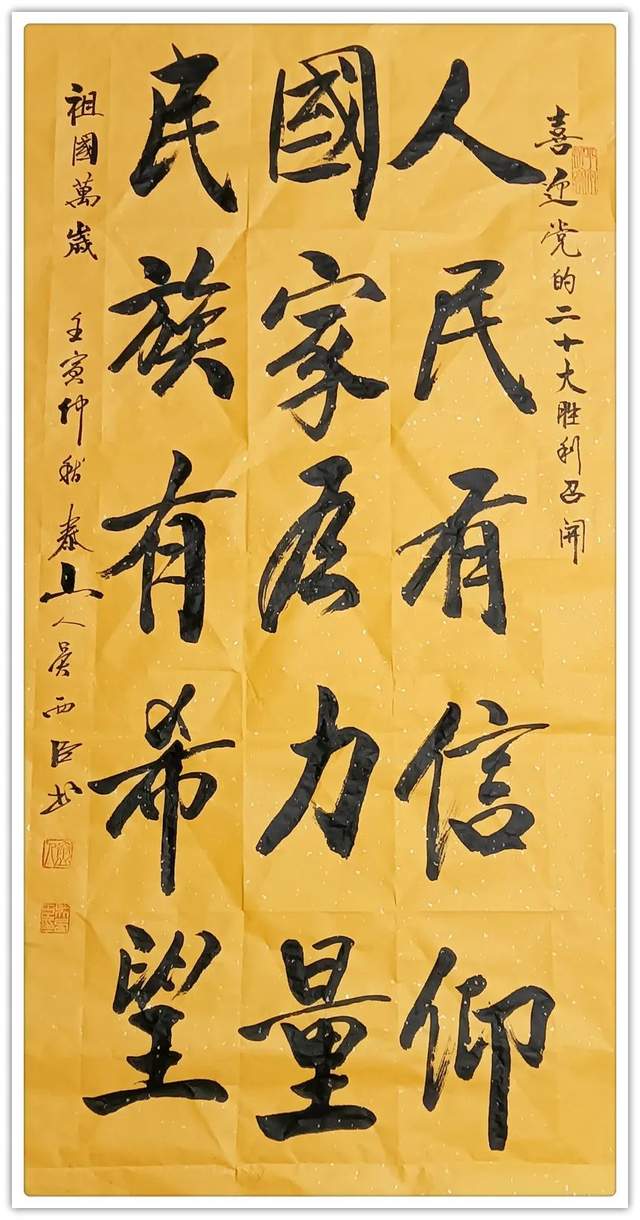 喜迎党的二十大胜利召开
人民有信仰
國家有力量
民族有希望
祖國萬歲 壬寅仲秋 泰山人吴西书